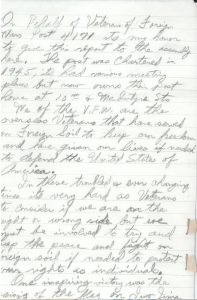 On Behalf of Veterans of Foreign
Wars Post 4191 its my honor
to give this report to the assembly
here. The post was Chartered in
1945, its had various meeting
places but now owns the first
home at 10th & McIntyre Sts
We of the V.F.W. are the
overseas Veterans that have served
on Foreign soil to keep our freedom
and have given our lives if needed
to defend the United States of
America.
In these troubled & ever changing
times its very hard as Veterans
to consider if we are on the
right or wrong side, but we
must be involved to try and
keep the peace and fight on
foreign soil if needed to protect
our rights as individuals.
One inspiring victory was the
raising of the flag on Iwo Jima